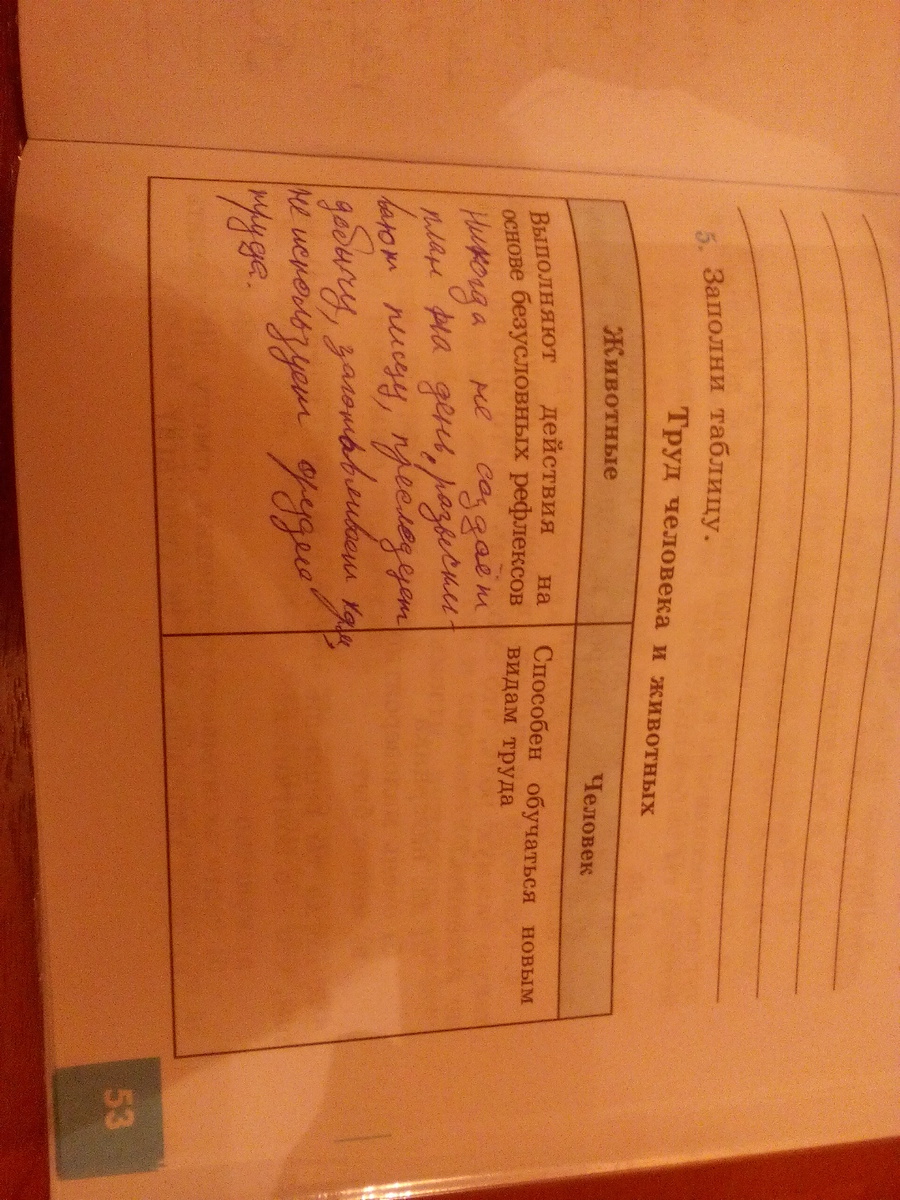 5. Заполни таблицу.
Труд человека и животных
Животные
Человек
Выполняют действия на
основе безусловных рефлексов
Никогда не создаёт
план на день, разыски-
вают пищу, преследует
добычу, заготавливают еду,
не использует орудие
труда.
Способен обучаться новым
видам труда
53